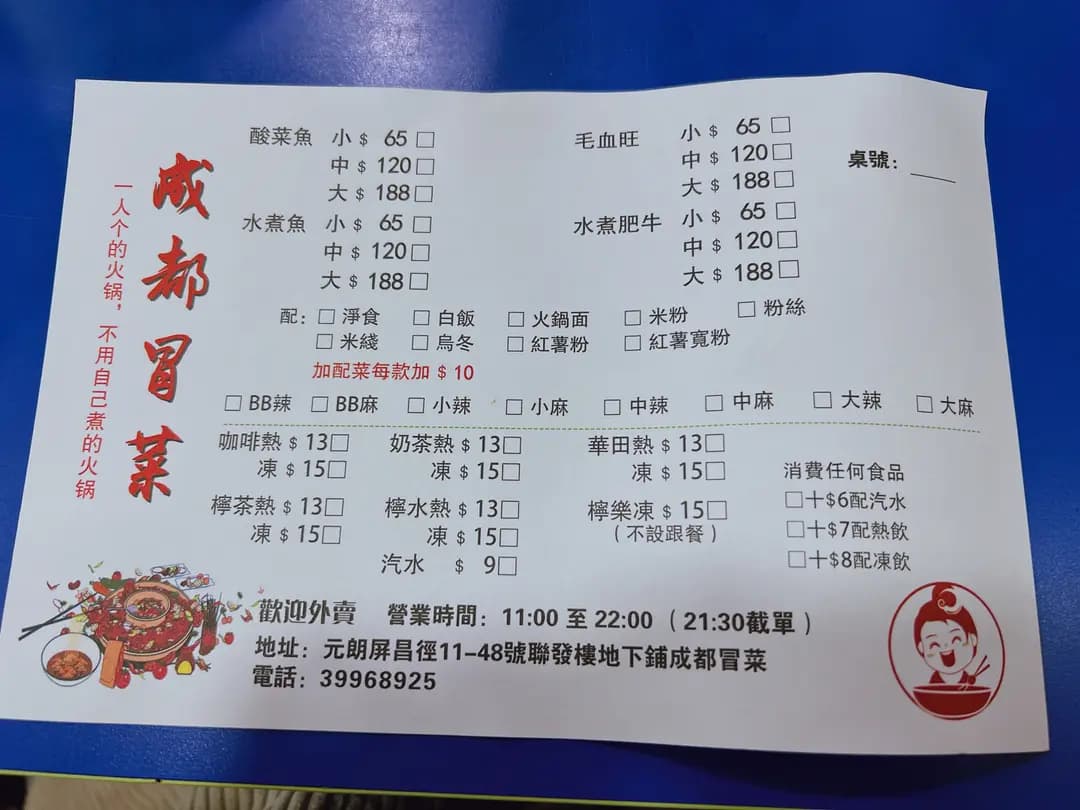 成都冒菜
一人个的火锅，不用自己煮的火锅
酸菜魚 小 $ 65 □
中 $ 120 □
大 $ 188 □
水煮魚 小 $ 65 □
中 $ 120 □
大 $ 188 □
毛血旺 小 $ 65 □
中 $ 120 □
大 $ 188 □
水煮肥牛 小 $ 65 □
中 $ 120 □
大 $ 188 □
桌號：____
配：□ 淨食 □ 白飯 □ 火鍋面 □ 米粉 □ 粉絲
□ 米綫 □ 烏冬 □ 紅薯粉 □ 紅薯寬粉
加配菜每款加 $ 10
□ BB辣 □ BB麻 □ 小辣 □ 小麻 □ 中辣 □ 中麻 □ 大辣 □ 大麻
咖啡熱 $ 13□ 奶茶熱 $ 13□ 華田熱 $ 13□
凍 $ 15□ 凍 $ 15□ 凍 $ 15□
檸茶熱 $ 13□ 檸水熱 $ 13□ 檸樂凍 $ 15□
凍 $ 15□ 凍 $ 15□ （不設跟餐）
汽水 $ 9□
消費任何食品
□十$6配汽水
□十$7配熱飲
□十$8配凍飲
歡迎外賣 營業時間：11:00 至 22:00 （21:30截單）
地址：元朗屏昌徑11-48號聯發樓地下鋪成都冒菜
電話：39968925